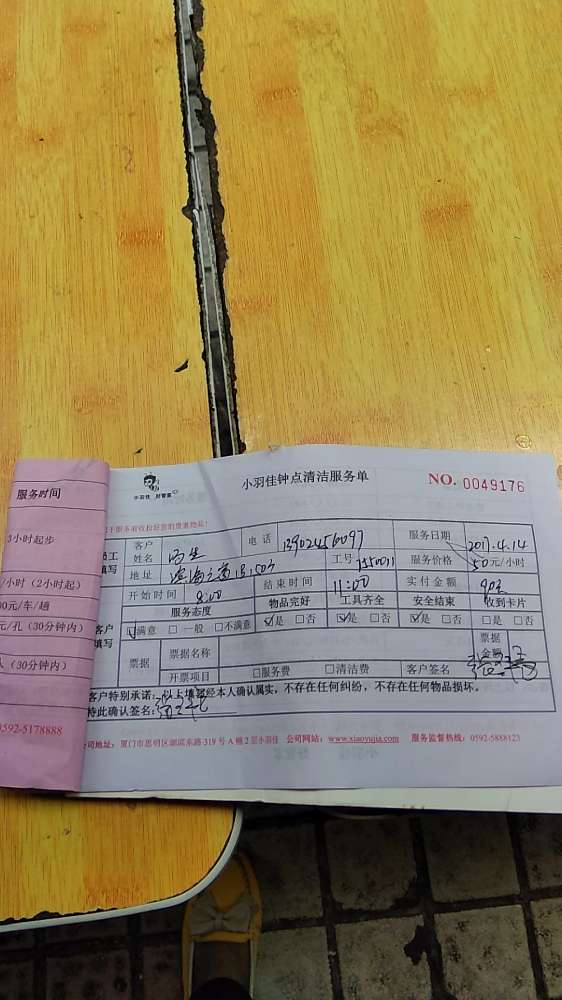 小羽佳钟点清洁服务单
NO. 0049176
小羽佳 好管家
服务时间
3小时起步
小时（2小时起）
00元/车/趟
元/孔（30分钟内）
（30分钟内）
0592-5178888
客户姓名 电话 13902456097 服务日期 2017.4.14
地址 工号 服务价格 50元/小时
开始时间 8:00 结束时间 11:00 实付金额
服务态度 物品完好 工具齐全 安全结束 收到卡片
☑满意 □一般 □不满意 ☑是 □否 ☑是 □否 ☑是 □否 □是 □否
客户填写
票据 票据名称 票据金额
开票项目 □服务费 □清洁费 客户签名
客户特别承诺：以上填写经本人确认属实，不存在任何纠纷，不存在任何物品损坏。
特此确认签名：
公司地址：厦门市思明区湖滨东路319号A幢2层小羽佳 公司网站：www.xiaoyujia.com 服务监督热线：0592-5888123